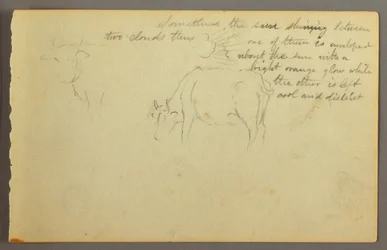 Sometimes the sun shining between
two clouds thus
one of them is
about the sun into a
bright orange glow while
the other is left
cool and distinct